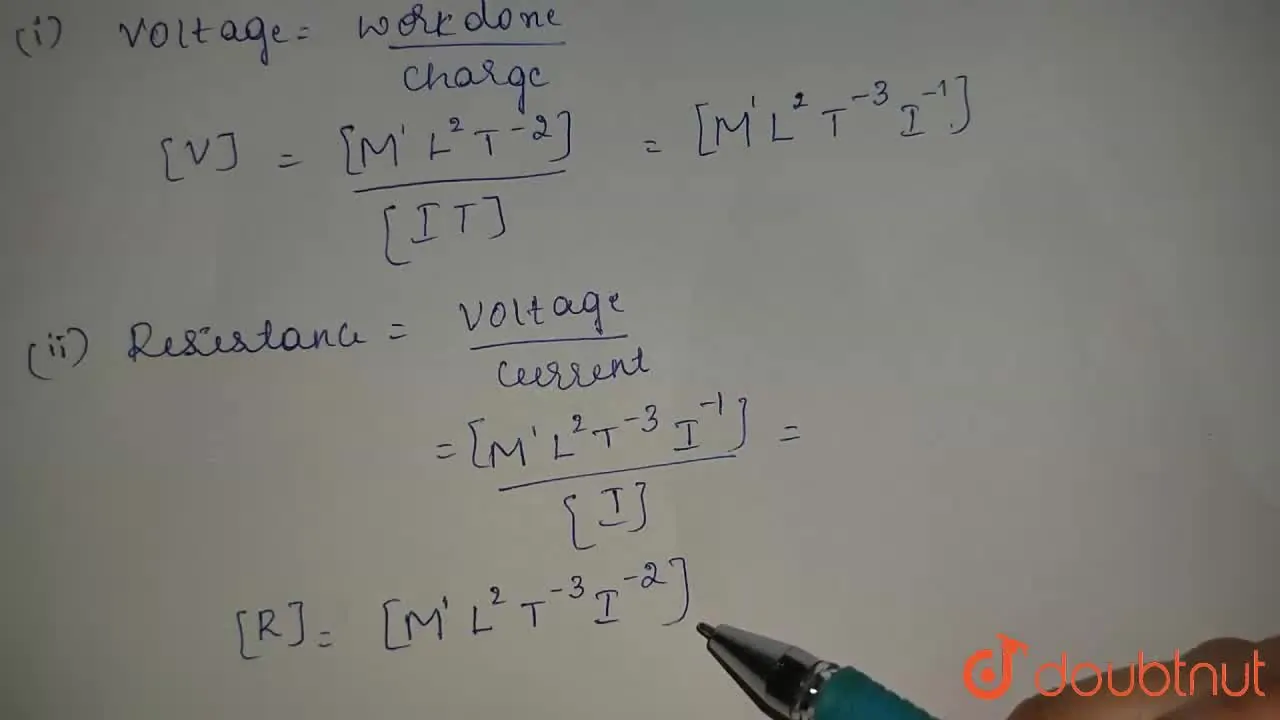 (i) Voltage = workdone
charge
[V] = [M¹ L² T⁻²] = [M¹ L² T⁻³ I⁻¹]
[I T]
(ii) Resistance = Voltage
current
= [M¹ L² T⁻³ I⁻¹] =
[I]
[R] = [M¹ L² T⁻³ I⁻²]
doubtnut